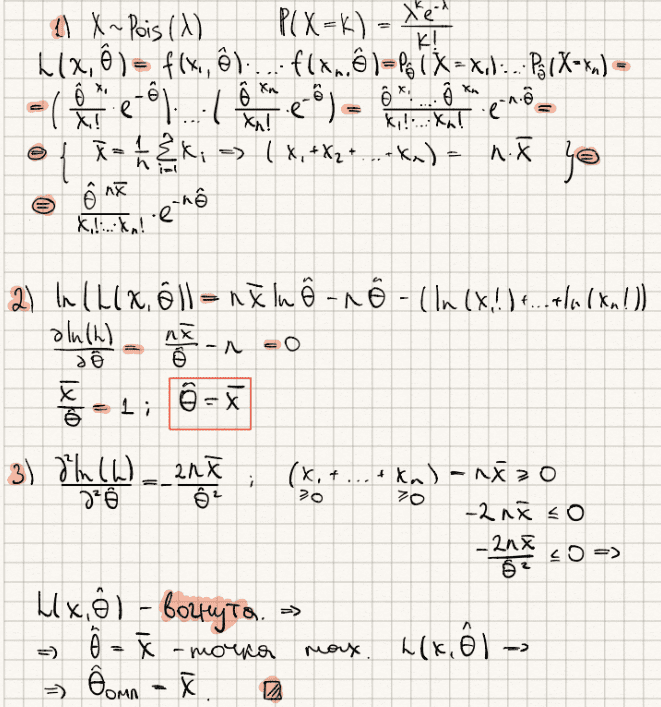 1) X ~ Pois(λ) P(X = k) = λ^k e^{-λ} / k!
L(x, θ̂) = f(x₁, θ̂) · ... · f(xₙ, θ̂) = P_θ̂(X = x₁) · ... · P_θ̂(X = xₙ) =
= (θ̂^{x₁} / x₁! · e^{-θ̂}) · ... · (θ̂^{xₙ} / xₙ! · e^{-θ̂}) = θ̂^{x₁} ... θ̂^{xₙ} / x₁! · ... · xₙ! · e^{-n·θ̂} =
= { x̄ = 1/n Σ_{i=1}^{n} xᵢ => (x₁ + x₂ + ... + xₙ) = n · x̄ } =
= θ̂^{n x̄} / x₁! · ... · xₙ! · e^{-nθ̂}
2) ln(L(x, θ̂)) = n x̄ ln θ̂ - n θ̂ - (ln(x₁!) + ... + ln(xₙ!))
∂ln(L) / ∂θ̂ = n x̄ / θ̂ - n = 0
x̄ / θ̂ = 1 ; θ̂ = x̄
3) ∂² ln(L) / ∂² θ̂ = - 2n x̄ / θ̂² ; (x₁ + ... + xₙ) = n x̄ ≥ 0
≥0 ≥0
-2n x̄ ≤ 0
-2n x̄ / θ̂² ≤ 0 =>
L(x, θ̂) - вогнута. =>
=> θ̂ = x̄ - точка max. L(x, θ̂) =>
=> θ̂_омп = x̄.